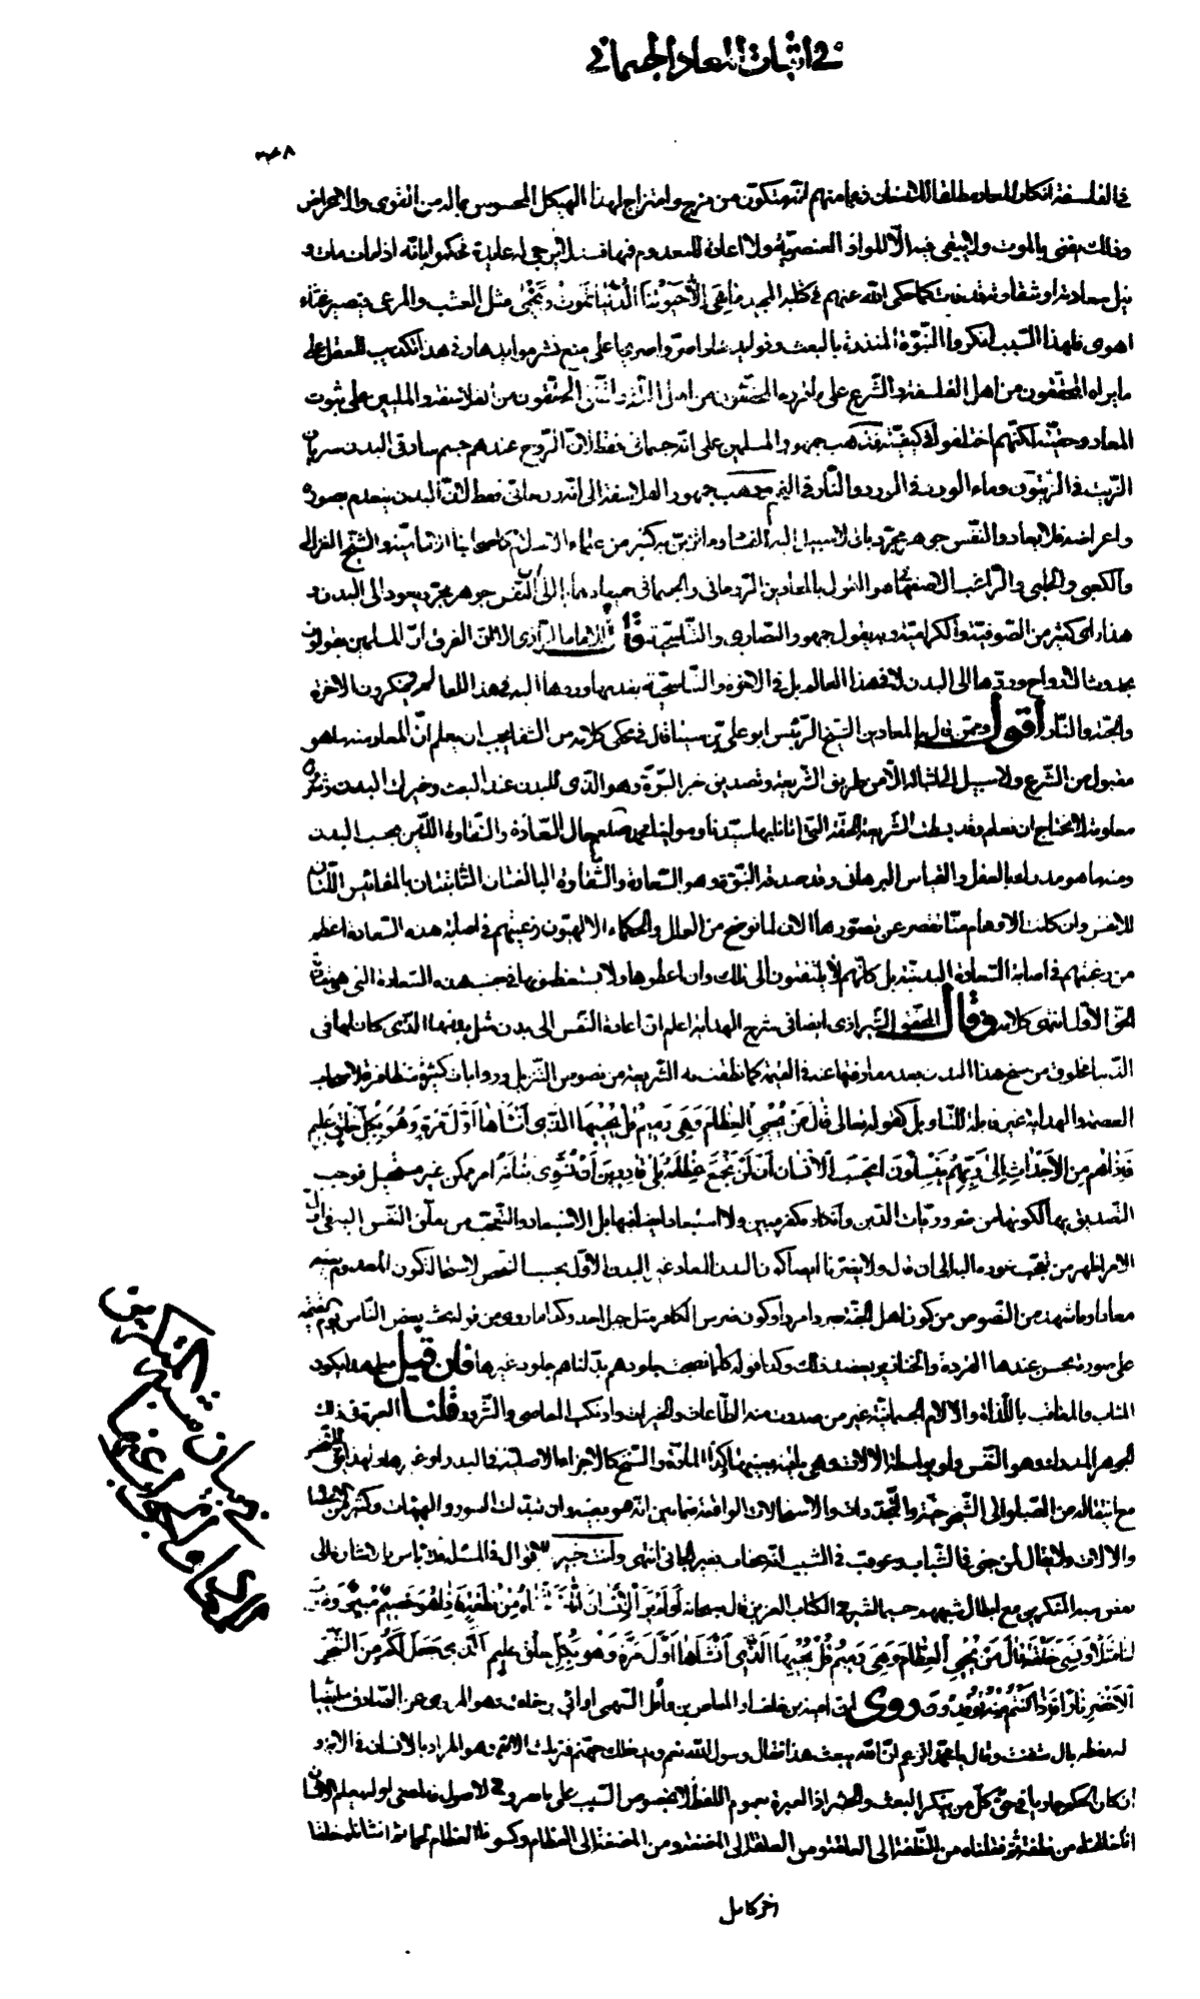 في اثبات المعاد الجسماني
٣٤٨
في الفلسفة انكار المعاد مطلقا للانسان زعما منهم انه متكون من مزج وامتزاج لهذا الهيكل المحسوس بماله من القوى والاعراض
وذلك يفنى بالموت ولا يبقى فيه الّا المواد العنصرية ولا اعادة للمعدوم فحكموا بانه اذا مات مات و
نيل سعادته او شقاوته قد فات كما حكى الله عنهم في كتابه المجيد ما هي الّا حيوتنا الدّنيا نموت ونحيى مثل العشب والمرعى فتصير غثاء
احوى فلهذا السّبب انكروا النبوّة المنذرة بالبعث وفي هذا تكذيب للعقل على
ما يراه المحققون من اهل الفلسفة والشّرع على ما قرره المحققون من اهل الملّة واتّفق المحققون من الفلاسفة والمليين على ثبوت
المعاد وحقيته لكنّهم اختلفوا في كيفيته فذهب جمهور المسلمين على انّه جسمانى فقط لانّ الرّوح عندهم جسم سار في البدن سريان
الزّيت في الزّيتون وماء الورد في الورد والنّار في الفحم وذهب جمهور الفلاسفة الى انّه روحانى فقط لانّ البدن ينعدم بصوره
واعراضه فلا يعاد والنّفس جوهر مجرّد باق لا سبيل اليه الفناء وذهب كثير من علماء الاسلام كاصحابنا الاماميّة والشّيخ الغزالى
والكعبى والحليمى والرّاغب الاصفهانى هو القول بالمعادين الرّوحانى والجسمانى جميعا ذهابا الى انّ النّفس جوهر مجرّد يعود الى البدن و
هذا راى كثير من الصّوفيّة والكراميّة وبه يقول جمهور النّصارى والتّناسخيّة قال الامام الرّازى الّا انّ الفرق انّ المسلمين يقولون
بحدوث الارواح وردّها الى البدن لا في هذا العالم بل في الآخرة والتّناسخيّة بقدمها وردّها اليه في هذا العالم وينكرون الآخرة
والجنّة والنّار اقول وممّن قال بالمعادين الشّيخ الرّئيس ابو على بن سينا قال فيما حكى كلامه من الشّفا يجب ان يعلم انّ المعاد منه ما هو
مقبول من الشّرع ولا سبيل الى اثباته الّا من طريق الشّريعة وتصديق خبر النّبوّة وهو الّذى للبدن عند البعث وخيرات البدن وشروره
معلومة لا يحتاج ان تعلم وقد بسطت الشّريعة الحقّة الّتى اتانا بها سيّدنا ومولينا محمّد صلعم حال السّعادة والشّقاوة اللّتين بحسب البدن
ومنه ما هو مدرك بالعقل والقياس البرهانى وقد صدقه النّبوّة وهو السّعادة والشّقاوة البالغتان الثّابتتان بالمقائيس اللّتان
للانفس وان كانت الاوهام منّا تقصر عن تصوّرها الان لما نوضح من العلل والحكماء الالهيّون رغبتهم في اصابة هذه السّعادة اعظم
من رغبتهم في اصابة السّعادة البدنيّة بل كانّهم لا يلتفتون الى تلك وان اعطوها ولا يستعظمونها في جنب هذه السّعادة الّتى هى مقاربة
الحقّ الاوّل انتهى كلامه وقال المحقّق الشّيرازى ايضا في شرح الهداية اعلم انّ اعادة النّفس الى بدن مثل بدنها الّذى كان لها في
الدّنيا مخلوق من سنخ هذا البدن بعد مفارقتها عنه في القيمة كما نطقت به الشّريعة من نصوص التّنزيل وروايات كثيرة متظافرة لاصحاب
العصمة والهداية غير قابلة للتّاويل كقوله تعالى قال من يحيى العظام وهى رميم قل يحييها الّذى انشاها اوّل مرّة وهو بكلّ خلق عليم
فاذا هم من الاجداث الى ربّهم ينسلون ايحسب الانسان ان لن نجمع عظامه بلى قادرين على ان نسوّى بنانه امر ممكن غير مستحيل فوجب
التّصديق بها لكونها من ضروريّات الدّين وانكاره كفر مبين ولا استبعاد ايضا فيها بل الاستبعاد والتّعجّب من تعلّق النّفس اليه في اوّل
الامر اظهر من تعجّب عوده اليه الى ان قال ولا يضرّنا ايضا كون البدن المعاد غير البدن الاوّل بحسب الشّخص لاستحالة كون المعدوم بعينه
معادا وما شهد من النّصوص من كون اهل الجنّة جردا مردا وكون ضرس الكافر مثل جبل احد وكذا ما روى من قوله يحشر بعض النّاس يوم القيمة
على صورة يحسن عندها القردة والخنازير يعضد ذلك وكذا قوله كلّما نضجت جلودهم بدّلناهم جلودا غيرها فان قيل فعلى هذا يكون
المثاب والمعاقب باللّذات والالام الجسمانيّة غير من صدرت منه الطّاعات والخيرات وارتكب المعاصى والشّرور قلنا العبرة في ذلك
بجوهر المدرك وهو النّفس ولو بواسطة الالات وهى باقية بعينها وكذا المادّة والسّنخ كالاجزاء الاصليّة في البدن او غيرها ولهذا يقال للشخص
مع انتقاله من الصّبا والى الشّيخوخة والتّجدّدات والاستحالات الواقعة فيما بين انّه هو بعينه وان تبدّلت الصّور والهيئات وكثير من الاعضاء
والالات ولا يقال لمن جنى في الشّباب وعوقب في الشّيب انّه عقاب بغير الجانى انتهى وانت خبير الاقوال في المسئلة فلا باس بان نشير الى
بعض شبه المنكرين مع ابطال شبههم حسبما اشير في الكتاب العزيز قال سبحانه اولم ير الانسان انّا خلقناه من نطفة فاذا هو خصيم مبين وضرب
لنا مثلا ونسى خلقه قال من يحيى العظام وهى رميم قل يحييها الّذى انشاها اوّل مرّة وهو بكلّ خلق عليم الّذى جعل لكم من الشّجر
الاخضر نارا فاذا انتم منه توقدون وروى انّ اميّة بن خلف او العاص بن وائل السّهمى او ابىّ بن خلف وهو المروى عن الصّادق
لعظم بال متفتّت وقال يا محمّد اتزعم انّ الله يبعث هذا فقال رسول الله نعم ويدخلك جهنّم فنزلت الاية وهو المراد بالانسان في الاية و
ان كان الحكم جاريا في حقّ كلّ من ينكر البعث والحشر اذ العبرة بعموم اللّفظ لا بخصوص السّبب على ما صرح في الاصول فالمعنى اولم يعلم الانسان
انا خلقناه من نطفة ثمّ نقلناه من النّطفة الى العلقة ومن العلقة الى المضغة ومن المضغة الى العظام وكسونا العظام لحما ثمّ انشاناه خلقا
اخر كامل
في بيان شبه المنكرين
للمعاد والجواب عنها